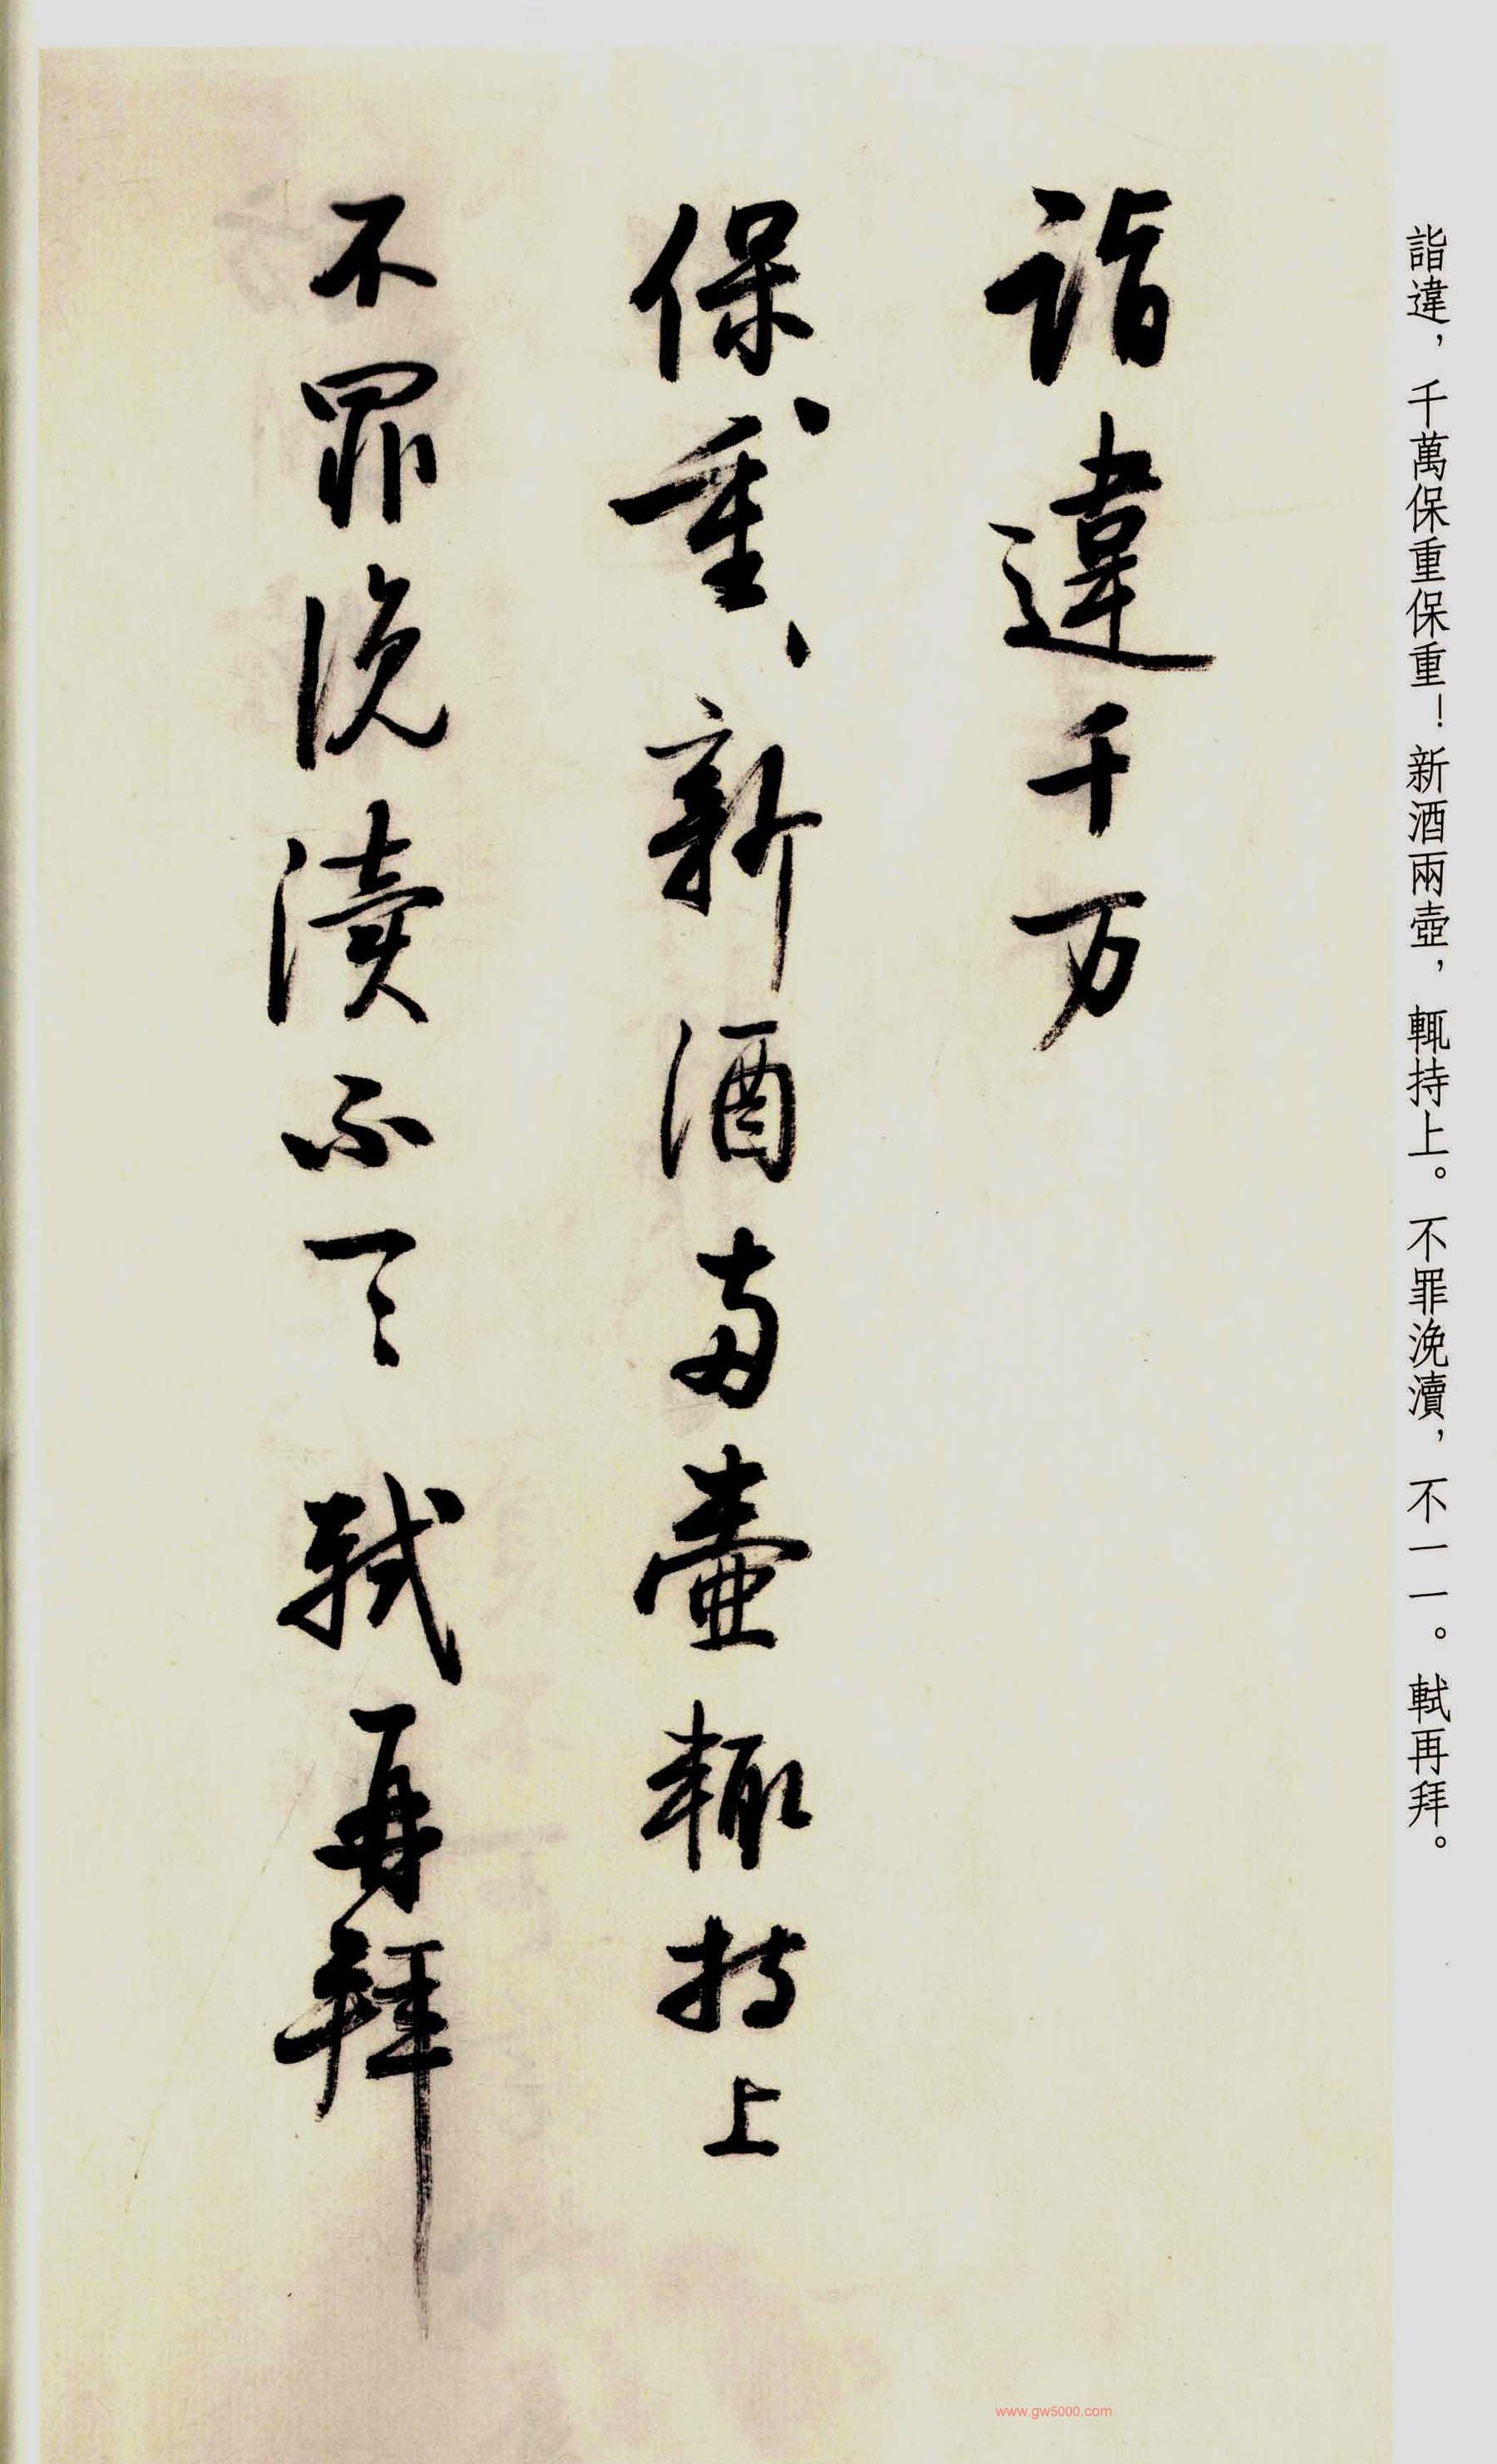 詣違，千萬保重保重！新酒兩壺，輒持上。不罪浼瀆，不一一。軾再拜。
詣違千万
保〻重〻新酒兩壺輒持上
不罪浼瀆不一〻軾再拜
www.gw5000.com